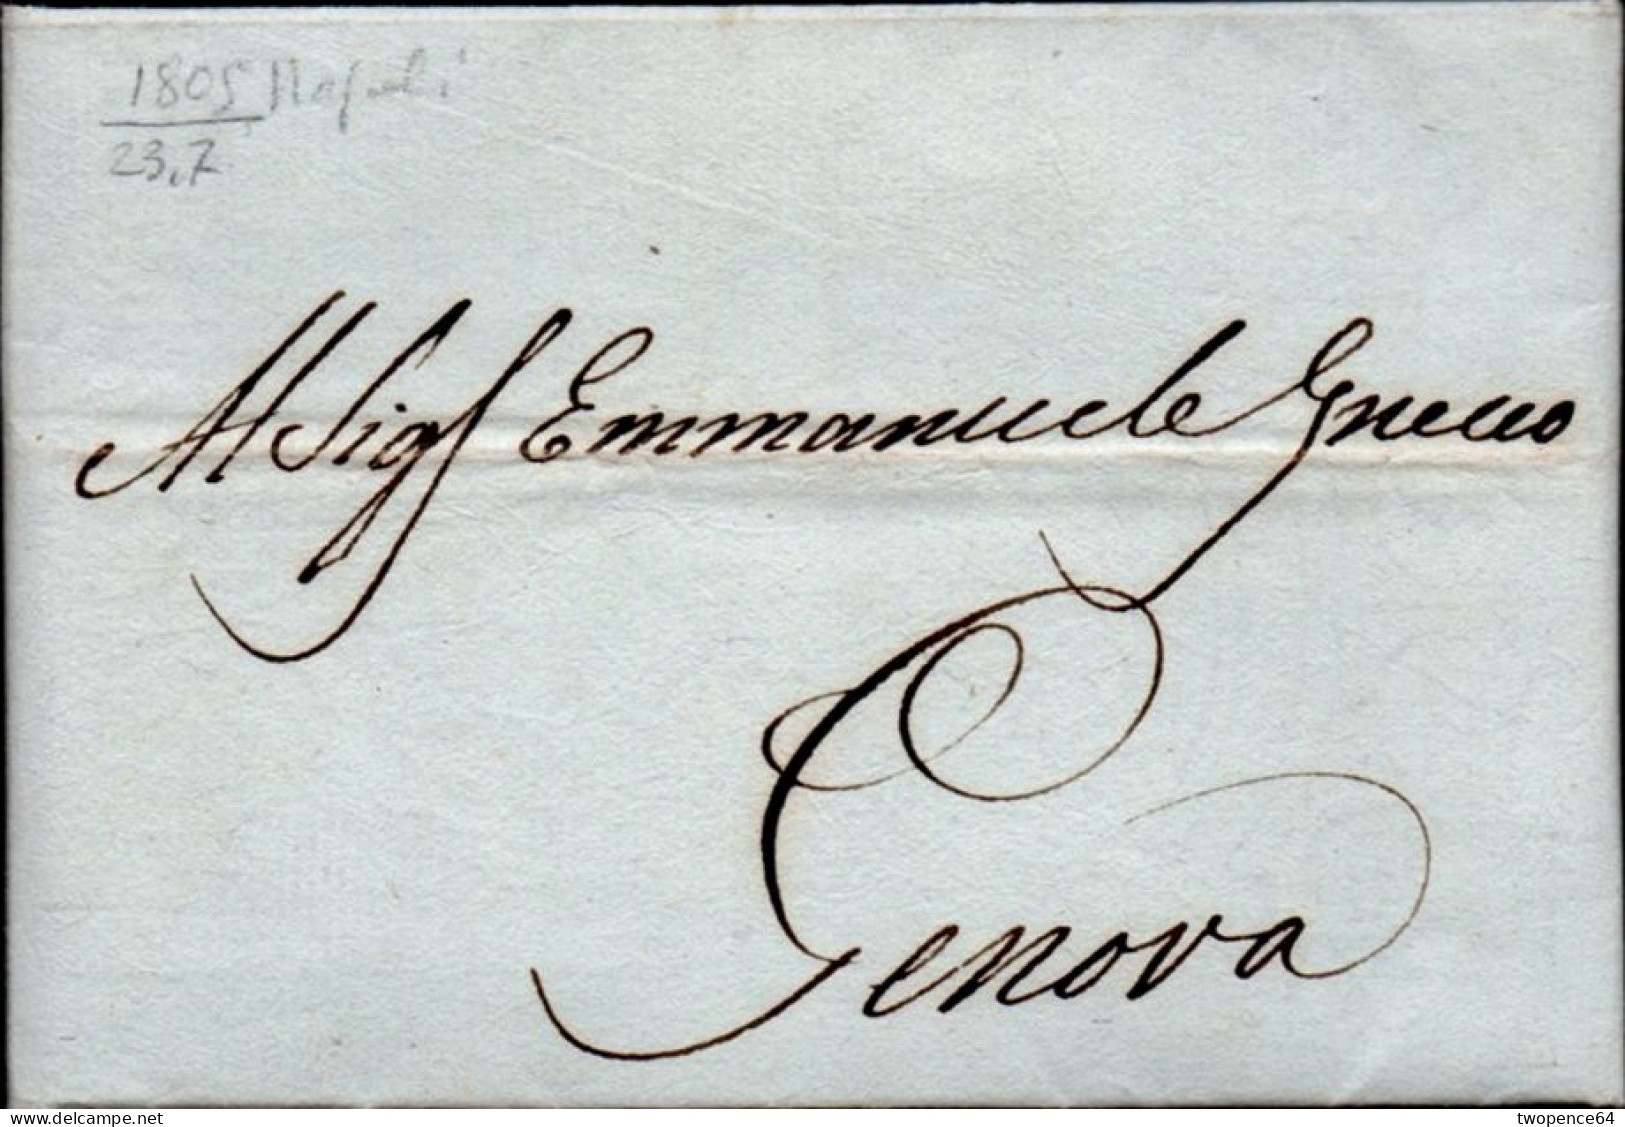 1805 Napoli
23,7
Al Sigr Emmanuele Gnecco
Genova
delcampe.net
twopence64